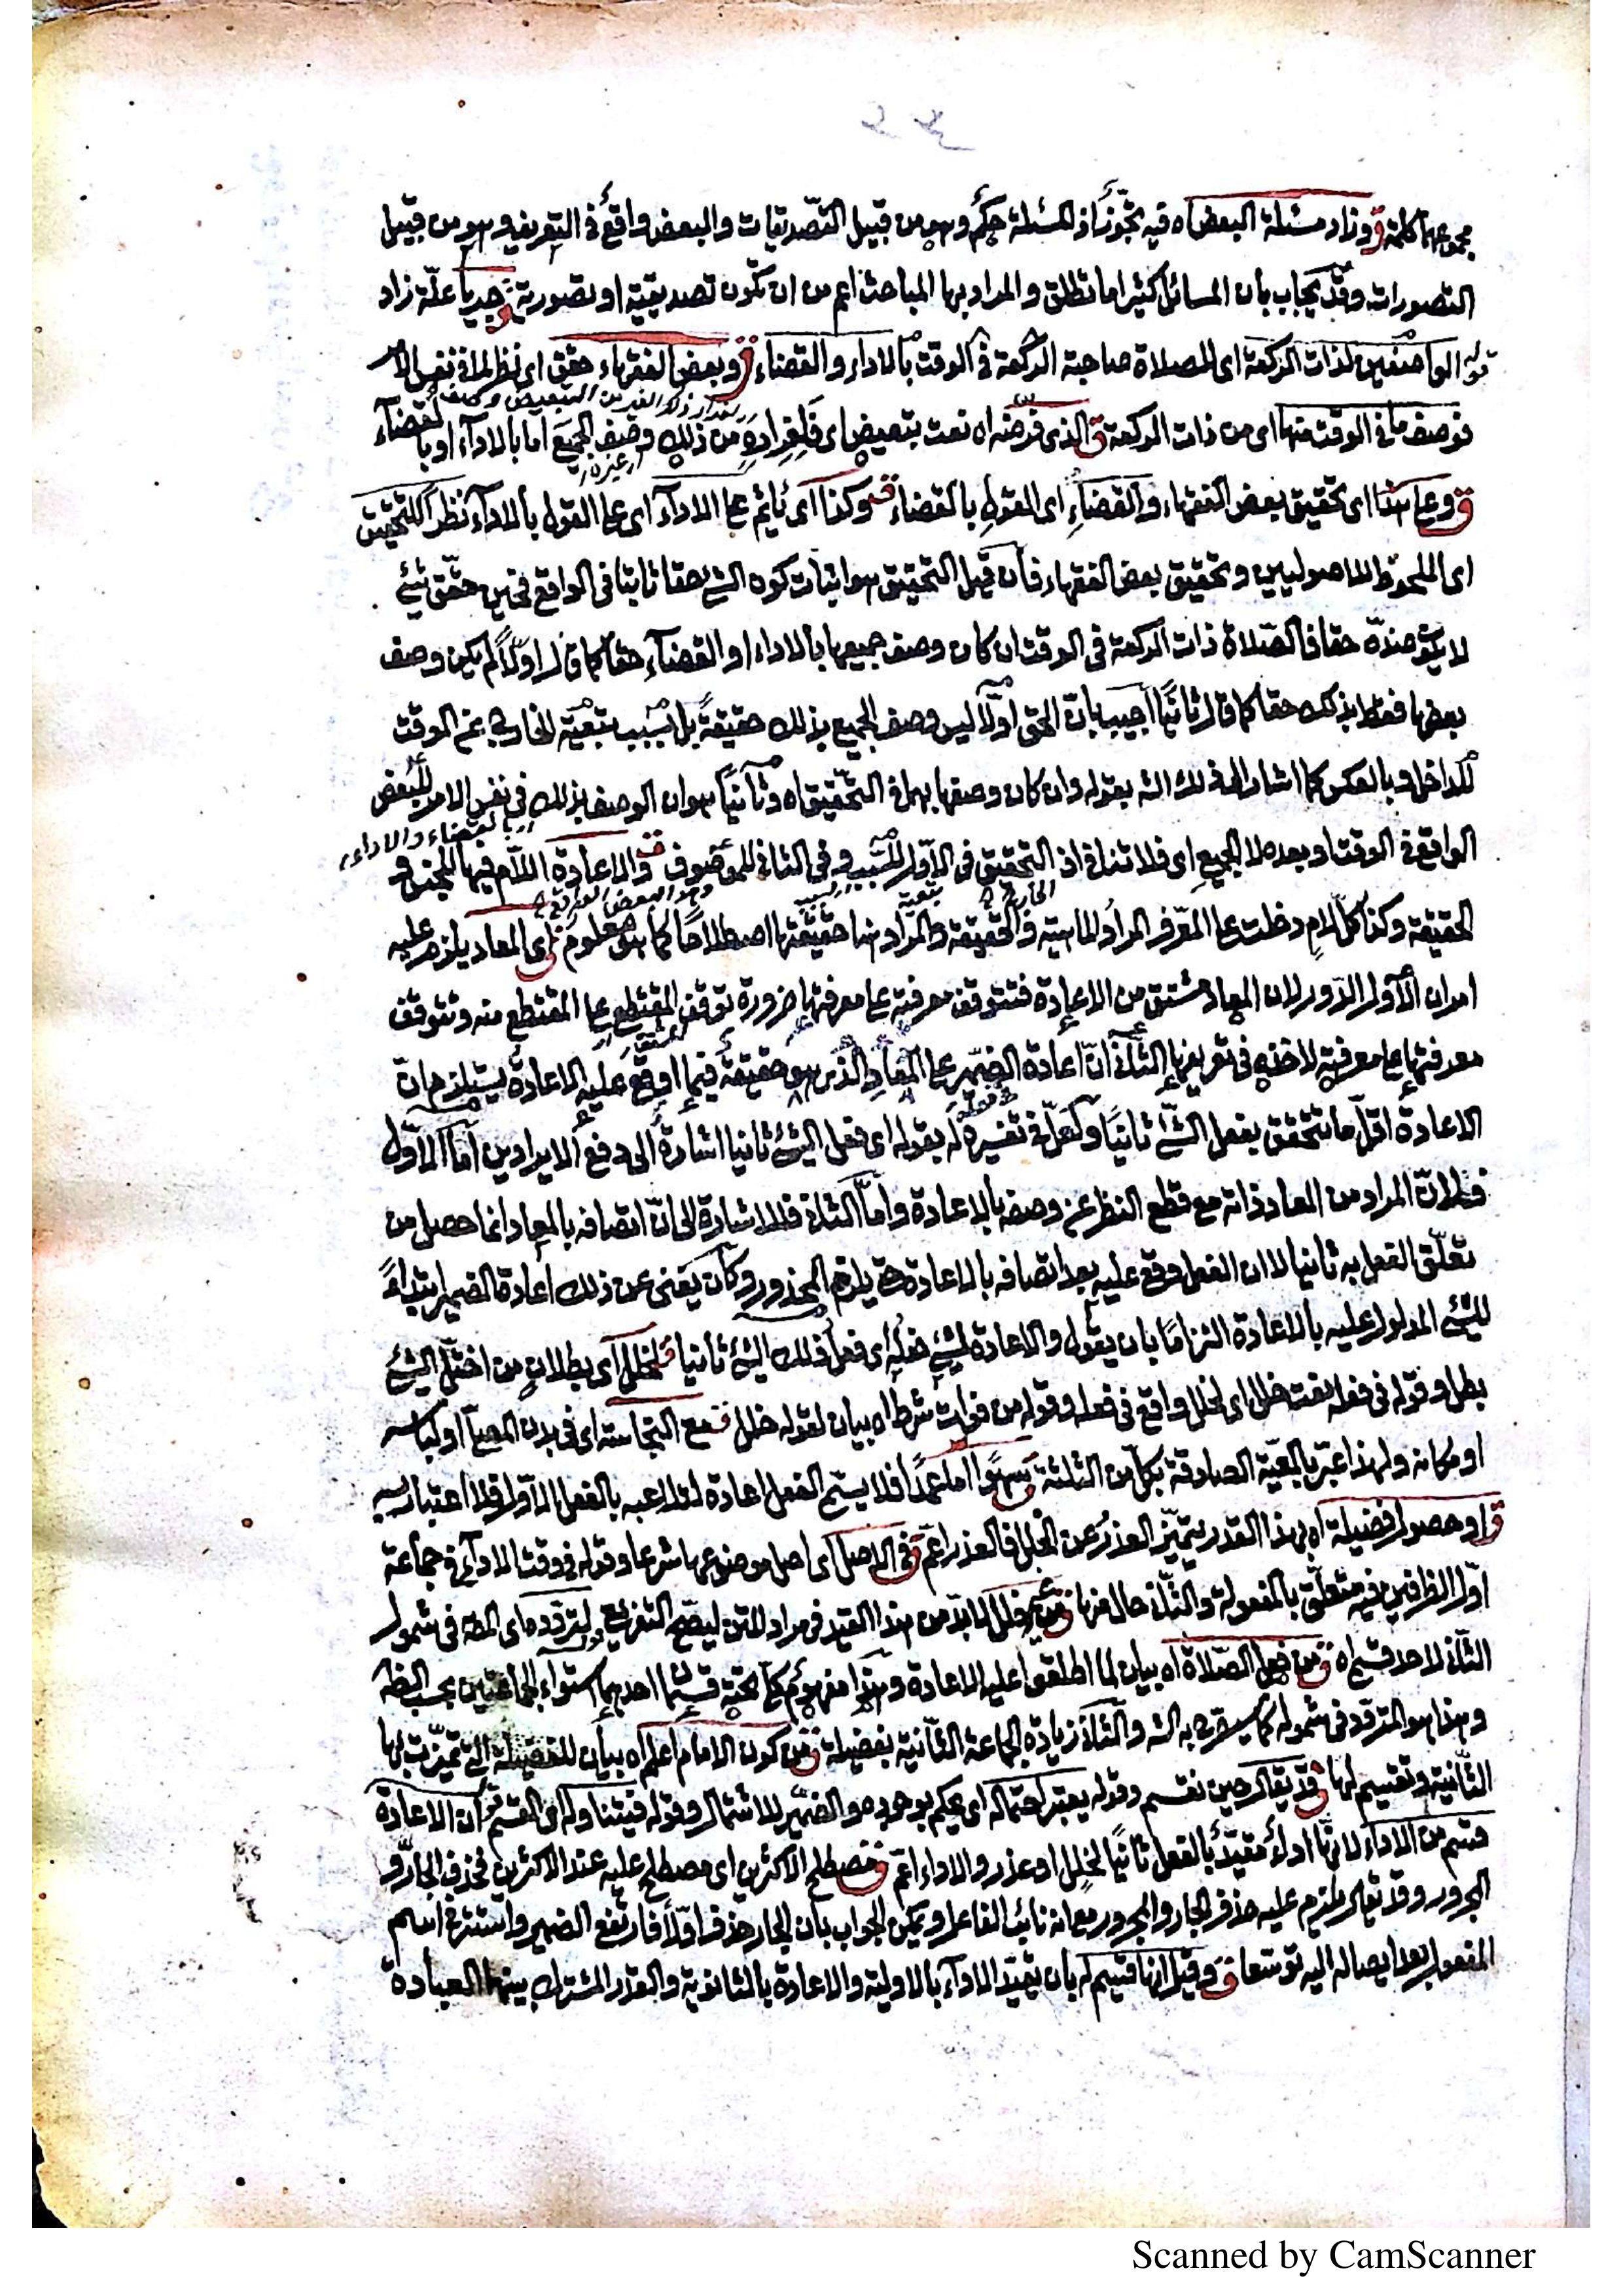 مجموعها كلمة ق وزاد مسئلة البعض اه فيه تجوّز اذ المسئلة حكم وهو من قبيل التصديقات والبعض واقع في التعريف وهو من قبيل
التصورات وقد يجاب بأن المسائل كثيرا ما تطلق والمراد بها المباحث اعم من ان تكون تصديقية او تصورية ق جريا علّة زاد
قوله الواصفين لذات الركعة اى للصلاة صاحبة الركعة في الوقت بالاداء والقضاء ق وبعض الفقهاء حقق اى نظر لما في نفس الامر
فوصف ما في الوقت منها اى من ذات الركعة ق الذى فرّ منه اه نعت بتبعيض اى من ذلك وصف الجميع اما بالاداء او بالقضاء
ق وعلى هذا اى تحقيق بعض الفقهاء والقضاء اى القول بالقضاء ق وكذا اى يأثم على الاداء اى على القول بالاداء نظرا للتحقيق
اى الملحوظ للاصوليين وتحقيق بعض الفقهاء فأن قيل التحقيق هو اثبات كون الشئ حقا ثابتا في الواقع فحين حقّق شئ
لا يكون ضدّه حقا فالصلاة ذات الركعة في الوقت ان كان وصف جميعها بالاداء او القضاء حقا كما قال اولا لم يكن وصف
بعضها فقط بذلك حقا كما قال ثانيا اجيب بان الحق اولا ليس وصف الجميع بذلك حقيقة بل بسبب تبعية الخارج عن الوقت
للداخل وبالعكس كما اشار الى ذلك الش بقوله وان كان وصفها بهما في التحقيق اه وثانيا هو ان الوصف بذلك في نفس الامر للبعض
بالقضاء والاداء
الواقع في الوقت او بعده لا الجميع اى فلا تنافى اذ التحقيق في الاول للسبب وفي الثاني للموصوف ق والاعادة اللام فيها للجنس و
الحقيقة وكذا كل لام دخلت على المعرّف المراد الماهية والحقيقة والمراد هنا حقيقتها اصطلاحا كما هو معلوم ق اى المعاد يلزم عليه
امران الاول الدور لان المعاد مشتق من الاعادة فتتوقف معرفته على معرفتها ضرورة توقف المقتطع على المقتطع منه وتتوقف
معرفتها على معرفته لاخذه في تعريفها الثاني ان اعادة الضمير على المعاد الذى هو حقيقة فيما اوقع عليه الاعادة يستلزم ان
الاعادة اقل ما تتحقق بفعل الشئ ثانيا ولعل في تفسيره له بقوله اى فعل الشئ ثانيا اشارة الى دفع الايرادين اما الاول
فلان المراد من المعاد ذاته مع قطع النظر عن وصفه بالاعادة واما الثاني فللاشارة الى ان اتصافه بالمعاد انما حصل من
تعلّق الفعل به ثانيا لا ان الفعل وقع عليه بعد اتصافه بالاعادة حتى يلزم المحذور وكان يغنى عن ذلك اعادة الضمير ابتداء
للشئ المدلول عليه بالاعادة التزاما بان يقول والاعادة لشئ فعله اى فعل ذلك الشئ ثانيا ق لخلل اى بطلان من اختلّ الشئ
بطل وقوله في فعله نعت خلل اى لخلل واقع في فعله وقوله من فوات شرط اه بيان لقوله خلل ق مع النجاسة اى في بدن المصلى او لباسه
او مكانه ولهذا عبّر بالمعيّة الصادقة بكل من الثلثة ق سهوا اما عمدا فلا يسمّ الفعل اعادة لتلاعبه بالفعل الاول فلا اعتبار به
ق او حصول فضيلة اه بهذا القدر يتميّز العذر عن الخلل فالعذر اعمّ ق في الاصل اى اصل موضوعها شرعا وقوله في وقت الاداء في جماعة
اول الظرفين فيه متعلّق بالمفعولة والثاني حال منها ق من غير خلل لا بد من هذا القيد في مراد المتن ليصحّ التفريع لتردده اى المص في شمول
الثاني لاحد قسميه اه ق من فعل الصلاة اه بيان لما اطلقوا عليه الاعادة وهذا مفهوم كلى تحته قسمان احدهما استواء الجماعتين بحسب الظ
وهذا هو المتردد في شموله كما سيصرّح به الش والثاني زيادة الجماعة الثانية بفضيلة ق من كون الامام اعلم اه بيان للفضيلة التي تميّزت بها
الثانية وتقسيم لها ق قد يقال حين نقسم وقوله يعتبر احتماله اى يحكم بوجوده والضمير للاشتمال وقوله فيتناوله اى القسم ان الاعادة
قسم من الاداء لانها اداء مقيّد بالفعل ثانيا لخلل او عذر والاداء اعمّ ق مصطلح الاكثرين اى مصطلح عليه عند الاكثرين فحذف الجارّ و
المجرور وقد يقال يلزم عليه حذف الجار والمجرور مع انه نائب الفاعل ويمكن الجواب بأن الجار حذف اولا فارتفع الضمير واستتر في اسم
المفعول بعد ايصاله اليه توسّعا ق وقيل انها قسيم له بان يقيّد الاداء بالاولية والاعادة بالثانوية والقدر المشترك بينهما العبادة
Scanned by CamScanner